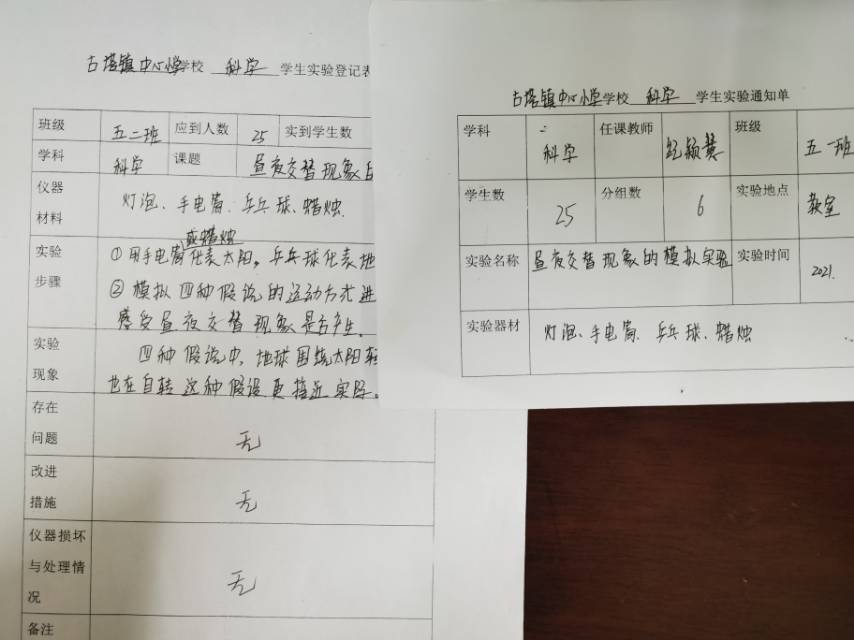 古塔镇中心小学学校 科学 学生实验登记表
班级 五二班 应到人数 25 实到学生数
学科 科学 课题 昼夜交替现象
仪器材料 灯泡、手电筒、乒乓球、蜡烛
或蜡烛
实验步骤 ①用手电筒代表太阳,乒乓球代表地
②模拟四种假说的运动方式进
感受昼夜交替现象是否产生。
实验现象 四种假说中,地球围绕太阳转
也在自转这种假设更接近实际。
存在问题 无
改进措施 无
仪器损坏与处理情况 无
备注
古塔镇中心小学学校 科学 学生实验通知单
学科 科学 任课教师 班级 五一班
学生数 25 分组数 6 实验地点 教室
实验名称 昼夜交替现象的模拟实验 实验时间 2021.
实验器材 灯泡、手电筒、乒乓球、蜡烛